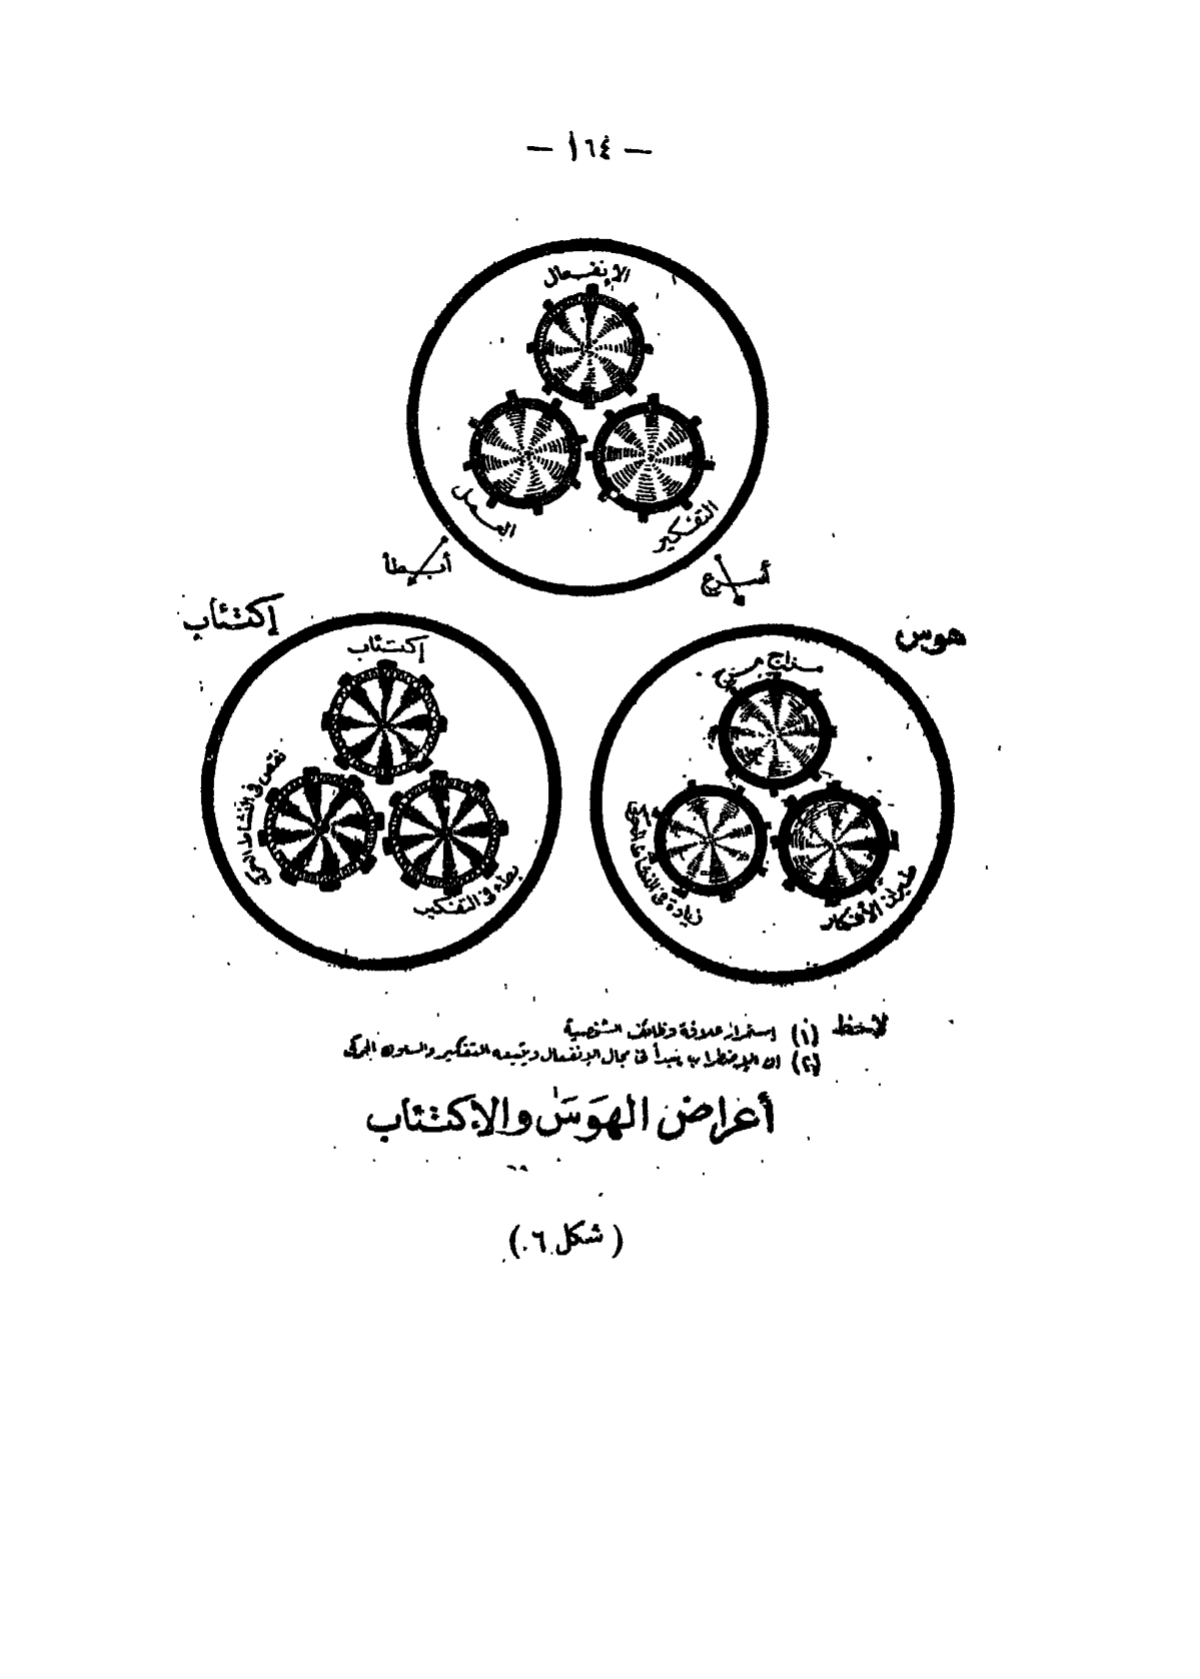 — ١٦٤ —
الإنفعال
العمل
التفكير
أبطأ
أسرع
إكتئاب
هوس
إكتئاب
نقص فى النشاط الحركى
بطء فى التفكير
مزاج مرح
زيادة فى النشاط الحركى
طيران الأفكار
لاحظ (١) إستمرار علاقة وظائف الشخصية
(٢) ان الإضطراب يبدأ فى مجال الإنفعال ويتبعه التفكير والسلوك الحركى
أعراض الهَوَسَ والإكتئاب
( شكل ٦ )